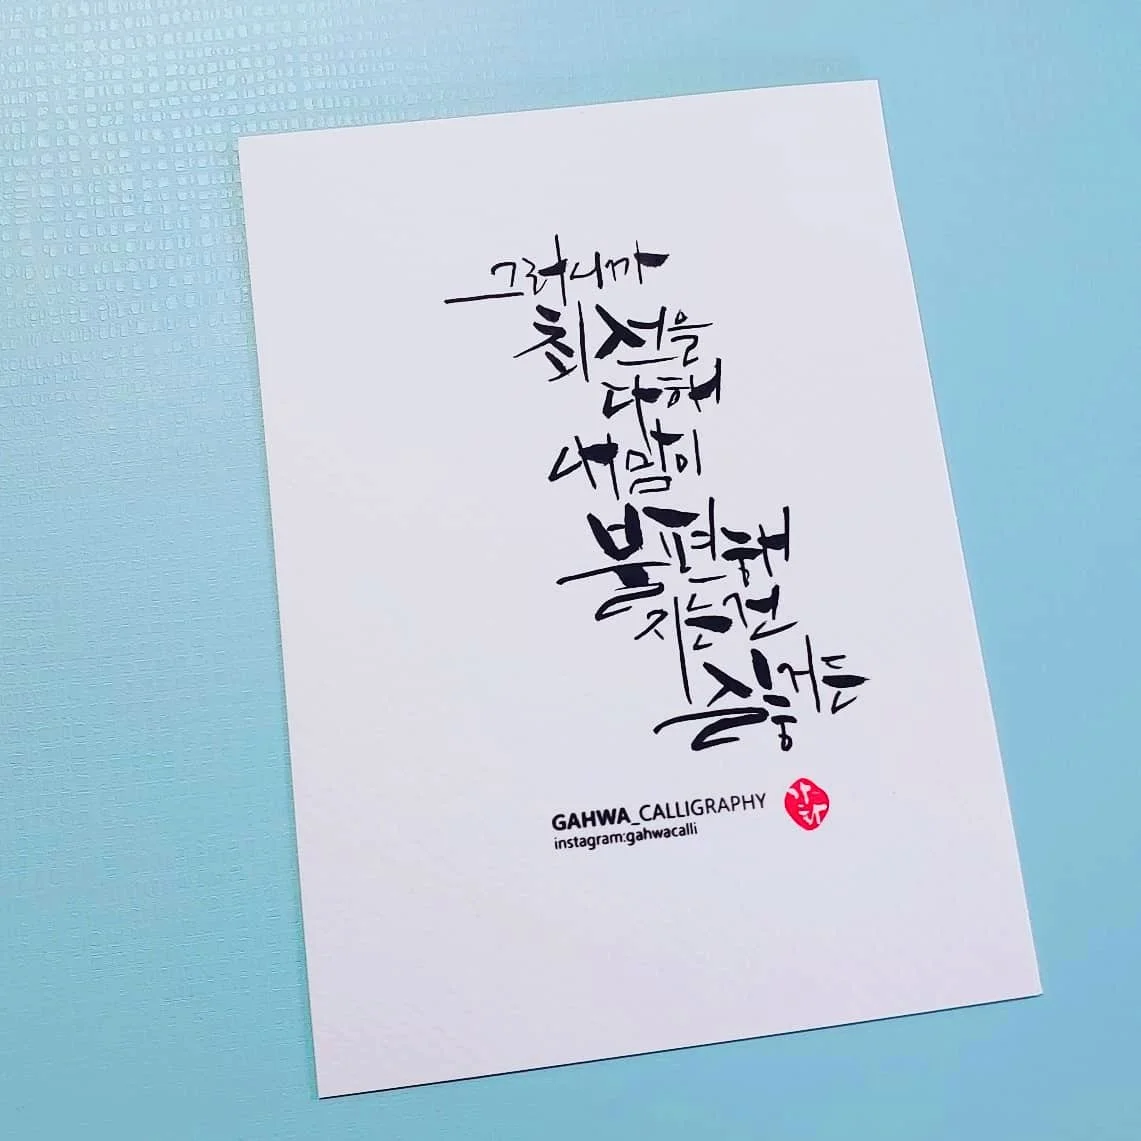 그러니까
최선을
다해
내맘이
불편해
지는건
싫거든
GAHWA_CALLIGRAPHY
instagram:gahwacalli
가화